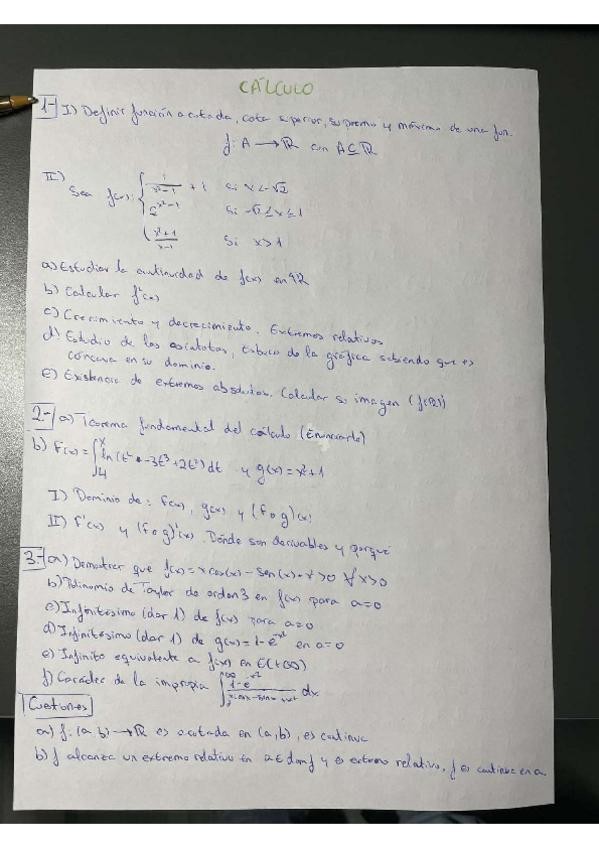 CÁLCULO
1- I) Definir función acotada, cota superior, supremo y máximo de una fun.
f: A → R con A ⊆ R
II) Sea f(x):
1/(x²-1) + 1 si x < -√2
e^(x²-1) si -√2 ≤ x ≤ 1
(x²+1)/(x-1) si x > 1
a) Estudiar la continuidad de f(x) en R
b) Calcular f'(x)
c) Crecimiento y decrecimiento. Extremos relativos
d) Estudio de las asíntotas, de la gráfica sabiendo que es
cóncava en su dominio.
E) Existencia de extremos absolutos. Calcular su imagen (f(R))
2- a) Teorema fundamental del cálculo (Enunciarlo)
b) F(x) = ∫ ln(t⁴ - 3t³ + 2t²) dt y g(x) = x² + 1
I) Dominio de: F(x), g(x) y (f o g)(x)
II) F'(x) y (f o g)'(x). Dónde son derivables y porqué
3- a) Demostrar que f(x) = x cos(x) - sen(x) + > 0 ∀x > 0
b) Polinomio de Taylor de orden 3 en f(x) para a=0
c) Infinitésimo (dar 1) de f(x) para a=0
d) Infinitésimo (dar 1) de g(x) = 1 - e^(-x²) en a=0
e) Infinito equivalente a f(x) en E(+∞)
f) Carácter de la impropia ∫ dx
Cuestiones
a) f: (a, b) → R es acotada en (a,b), es continua
b) f alcanza un extremo relativo en a ∈ dom f y es extremo relativo, f es continua en a.